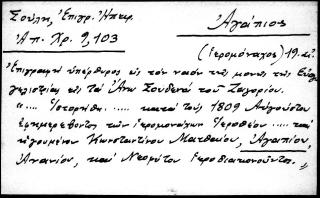 Σούλη, Ἐπιγρ. Ἠπειρ. Ἀγάπιος
Ἠπ. Χρ. 9, 103
(ἱερομόναχος) 19. αἰ.
Ἐπιγραφὴ ὑπέρθυρος εἰς τὸν ναὸν τῆς μονῆς τῆς Εὐαγ-
γελιστρίας εἰς τὰ Ἄνω Σουδενὰ τοῦ Ζαγορίου.
"..... Ἱστορήθη..... κατὰ τοὺς 1809 Αὐγούστου
ἐφημερεβόντος τῶν ἱερομονάχων Ἱεροθέου .... καὶ
ἡγουμένου Κωνσταντίνου Ματθαίου, Ἀγαπίου,
Ἀνανίου, καὶ Νεοφύτου ἱεροδιακονοῦντος. "